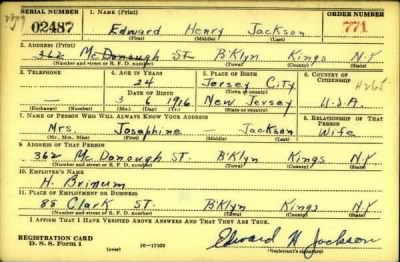 SERIAL NUMBER
1. NAME (Print)
ORDER NUMBER
02487
Edward Henry Jackson
771
(First) (Middle) (Last)
2. ADDRESS (Print)
362 McDonough ST. B'Klyn Kings N.Y
(Number and street or R. F. D. number) (Town) (County) (State)
3. TELEPHONE
4. AGE IN YEARS
5. PLACE OF BIRTH
6. COUNTRY OF CITIZENSHIP
24
Jersey City
—
DATE OF BIRTH
(Town or county)
3 6 1916
New Jersey
U.S.A.
(Exchange) (Number)
(Mo.) (Day) (Yr.)
(State or country)
7. NAME OF PERSON WHO WILL ALWAYS KNOW YOUR ADDRESS
8. RELATIONSHIP OF THAT PERSON
Mrs. Josephine — Jackson Wife
(Mr., Mrs., Miss) (First) (Middle) (Last)
9. ADDRESS OF THAT PERSON
362 McDonough ST. B'Klyn Kings N.Y
(Number and street or R. F. D. number) (Town) (County) (State)
10. EMPLOYER'S NAME
H. Brinum
11. PLACE OF EMPLOYMENT OR BUSINESS
88 Clark ST. B'Klyn Kings N.Y
(Number and street or R. F. D. number) (Town) (County) (State)
I AFFIRM THAT I HAVE VERIFIED ABOVE ANSWERS AND THAT THEY ARE TRUE.
REGISTRATION CARD
D. S. S. Form 1
(over)
16—17105
Edward H Jackson
(Registrant's signature)